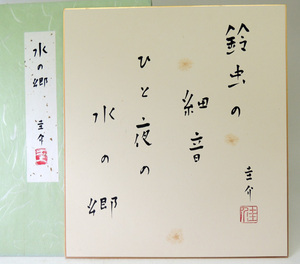 鈴虫の
細音
ひと夜の
水の郷
圭介
水の郷
圭介